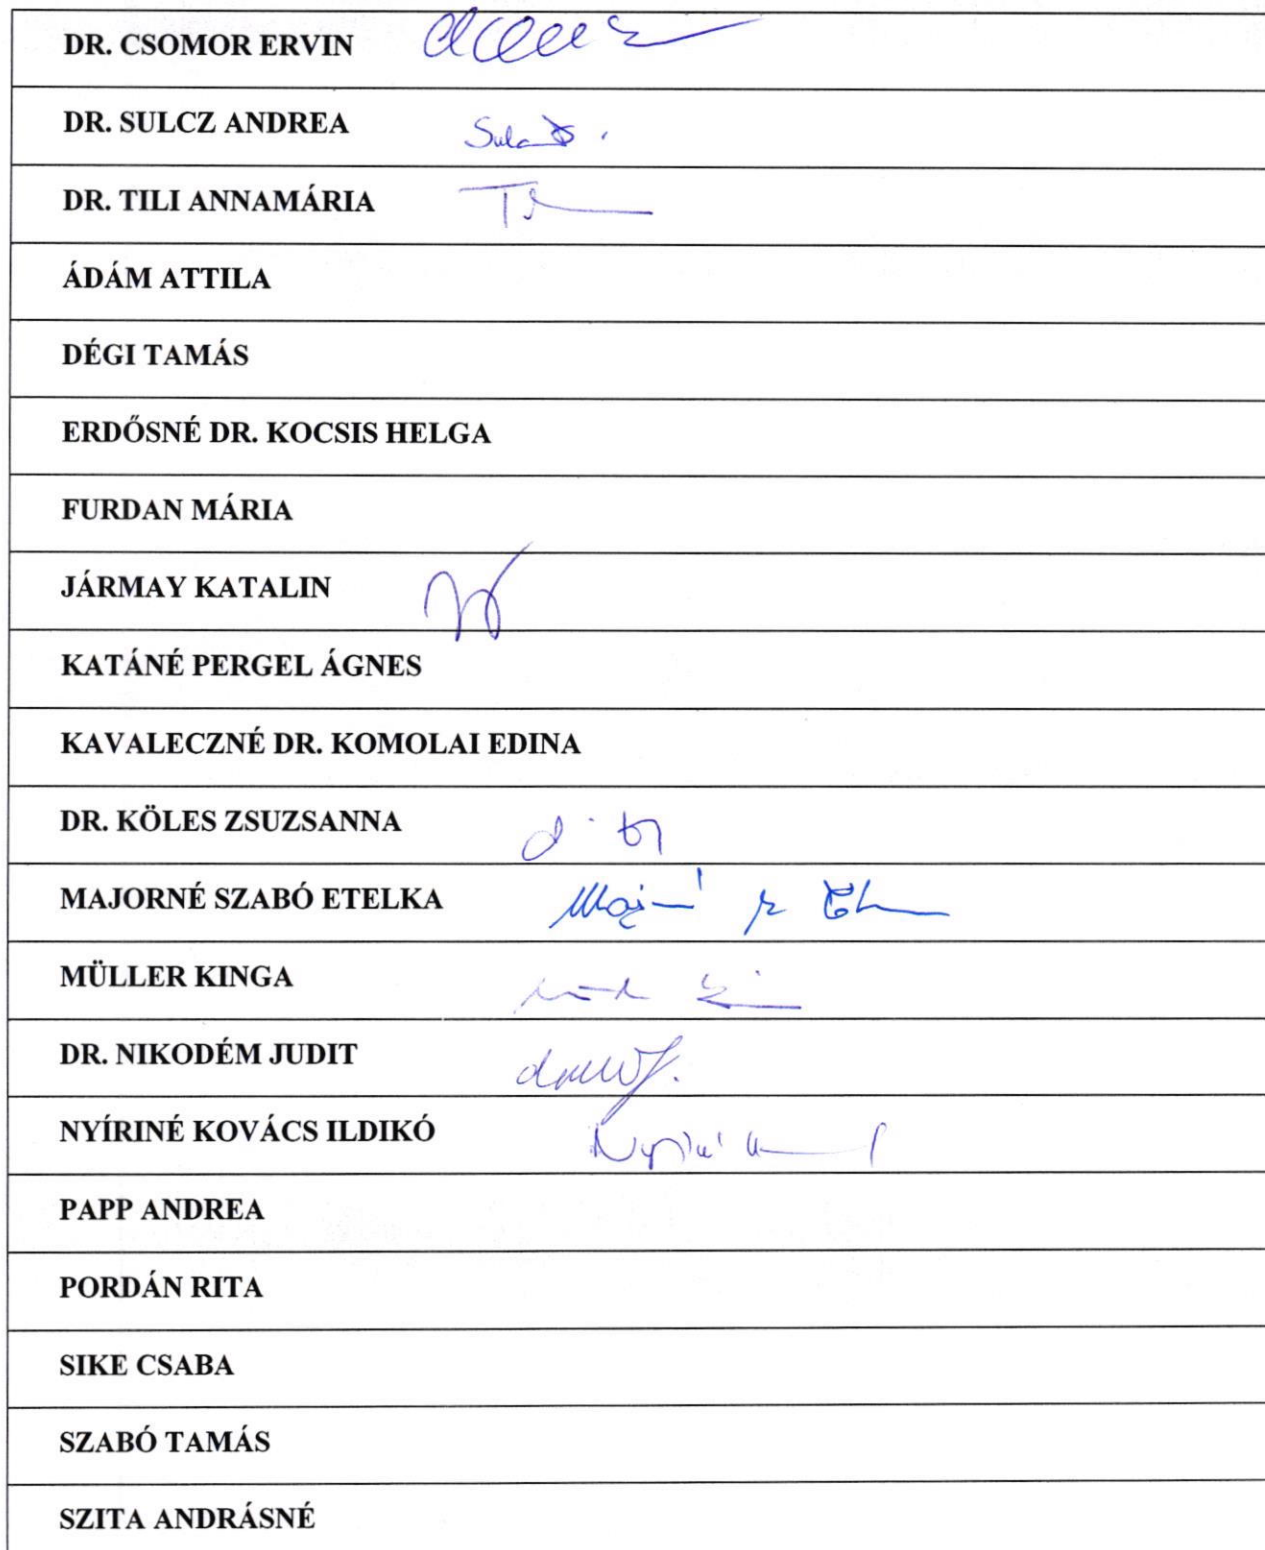 DR. CSOMOR ERVIN
DR. SULCZ ANDREA
DR. TILI ANNAMÁRIA
ÁDÁM ATTILA
DÉGI TAMÁS
ERDŐSNÉ DR. KOCSIS HELGA
FURDAN MÁRIA
JÁRMAY KATALIN
KATÁNÉ PERGEL ÁGNES
KAVALECZNÉ DR. KOMOLAI EDINA
DR. KÖLES ZSUZSANNA
MAJORNÉ SZABÓ ETELKA
MÜLLER KINGA
DR. NIKODÉM JUDIT
NYÍRINÉ KOVÁCS ILDIKÓ
PAPP ANDREA
PORDÁN RITA
SIKE CSABA
SZABÓ TAMÁS
SZITA ANDRÁSNÉ